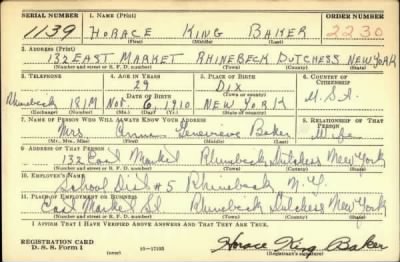 SERIAL NUMBER 1. NAME (Print) ORDER NUMBER
1139 HORACE KING BAKER 2230
(First) (Middle) (Last)
2. ADDRESS (Print)
132 EAST MARKET RHINEBECK DUTCHESS NEW YORK
(Number and street or R. F. D. number) (Town) (County) (State)
3. TELEPHONE 4. AGE IN YEARS 5. PLACE OF BIRTH 6. COUNTRY OF CITIZENSHIP
29 Dix
(Town or county)
DATE OF BIRTH
Rhinebeck 181M Nov. 6, 1910 NEW YORK U.S.A.
(Exchange) (Number) (Mo.) (Day) (Yr.) (State or country)
7. NAME OF PERSON WHO WILL ALWAYS KNOW YOUR ADDRESS 8. RELATIONSHIP OF THAT PERSON
Mrs. Anna Genevieve Baker Wife
(Mr., Mrs., Miss) (First) (Middle) (Last)
9. ADDRESS OF THAT PERSON
132 East Market Rhinebeck Dutchess New York
(Number and street or R. F. D. number) (Town) (County) (State)
10. EMPLOYER'S NAME
School Dist #5 Rhinebeck N.Y.
11. PLACE OF EMPLOYMENT OR BUSINESS
East Market St Rhinebeck Dutchess New York
(Number and street or R. F. D. number) (Town) (County) (State)
I AFFIRM THAT I HAVE VERIFIED ABOVE ANSWERS AND THAT THEY ARE TRUE.
REGISTRATION CARD
D. S. S. Form 1 (over) 16—17105 Horace King Baker
(Registrant's signature)